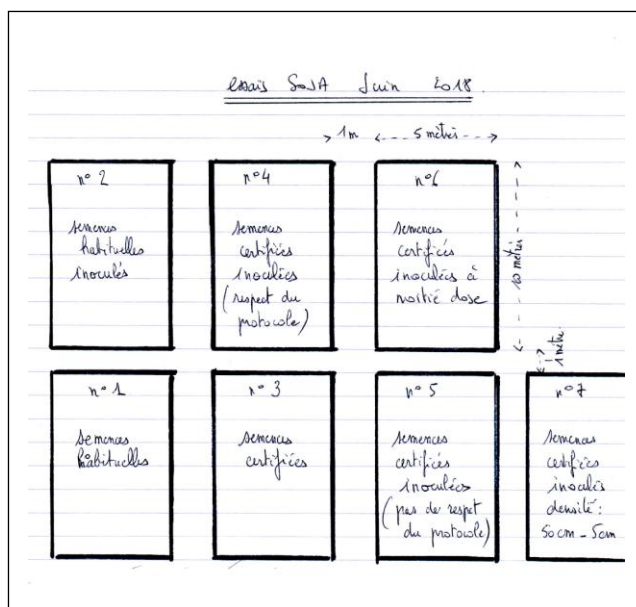 essais SOJA Juin 2018.
1m 5 mètres
n° 2
semences
habituelles
inoculés
n° 4
semences
certifiées
inoculées
(respect du
protocole)
n° 6
semences
certifiés
inoculées à
moitié dose
10 mètres
1 mètre.
n° 1
semences
habituelles
n° 3
semences
certifiées
n° 5
semences
certifiés
inoculées
(pas de respet
du protocole)
n° 7
semences
certifiés
inoculés
densité :
50 cm - 5 cm